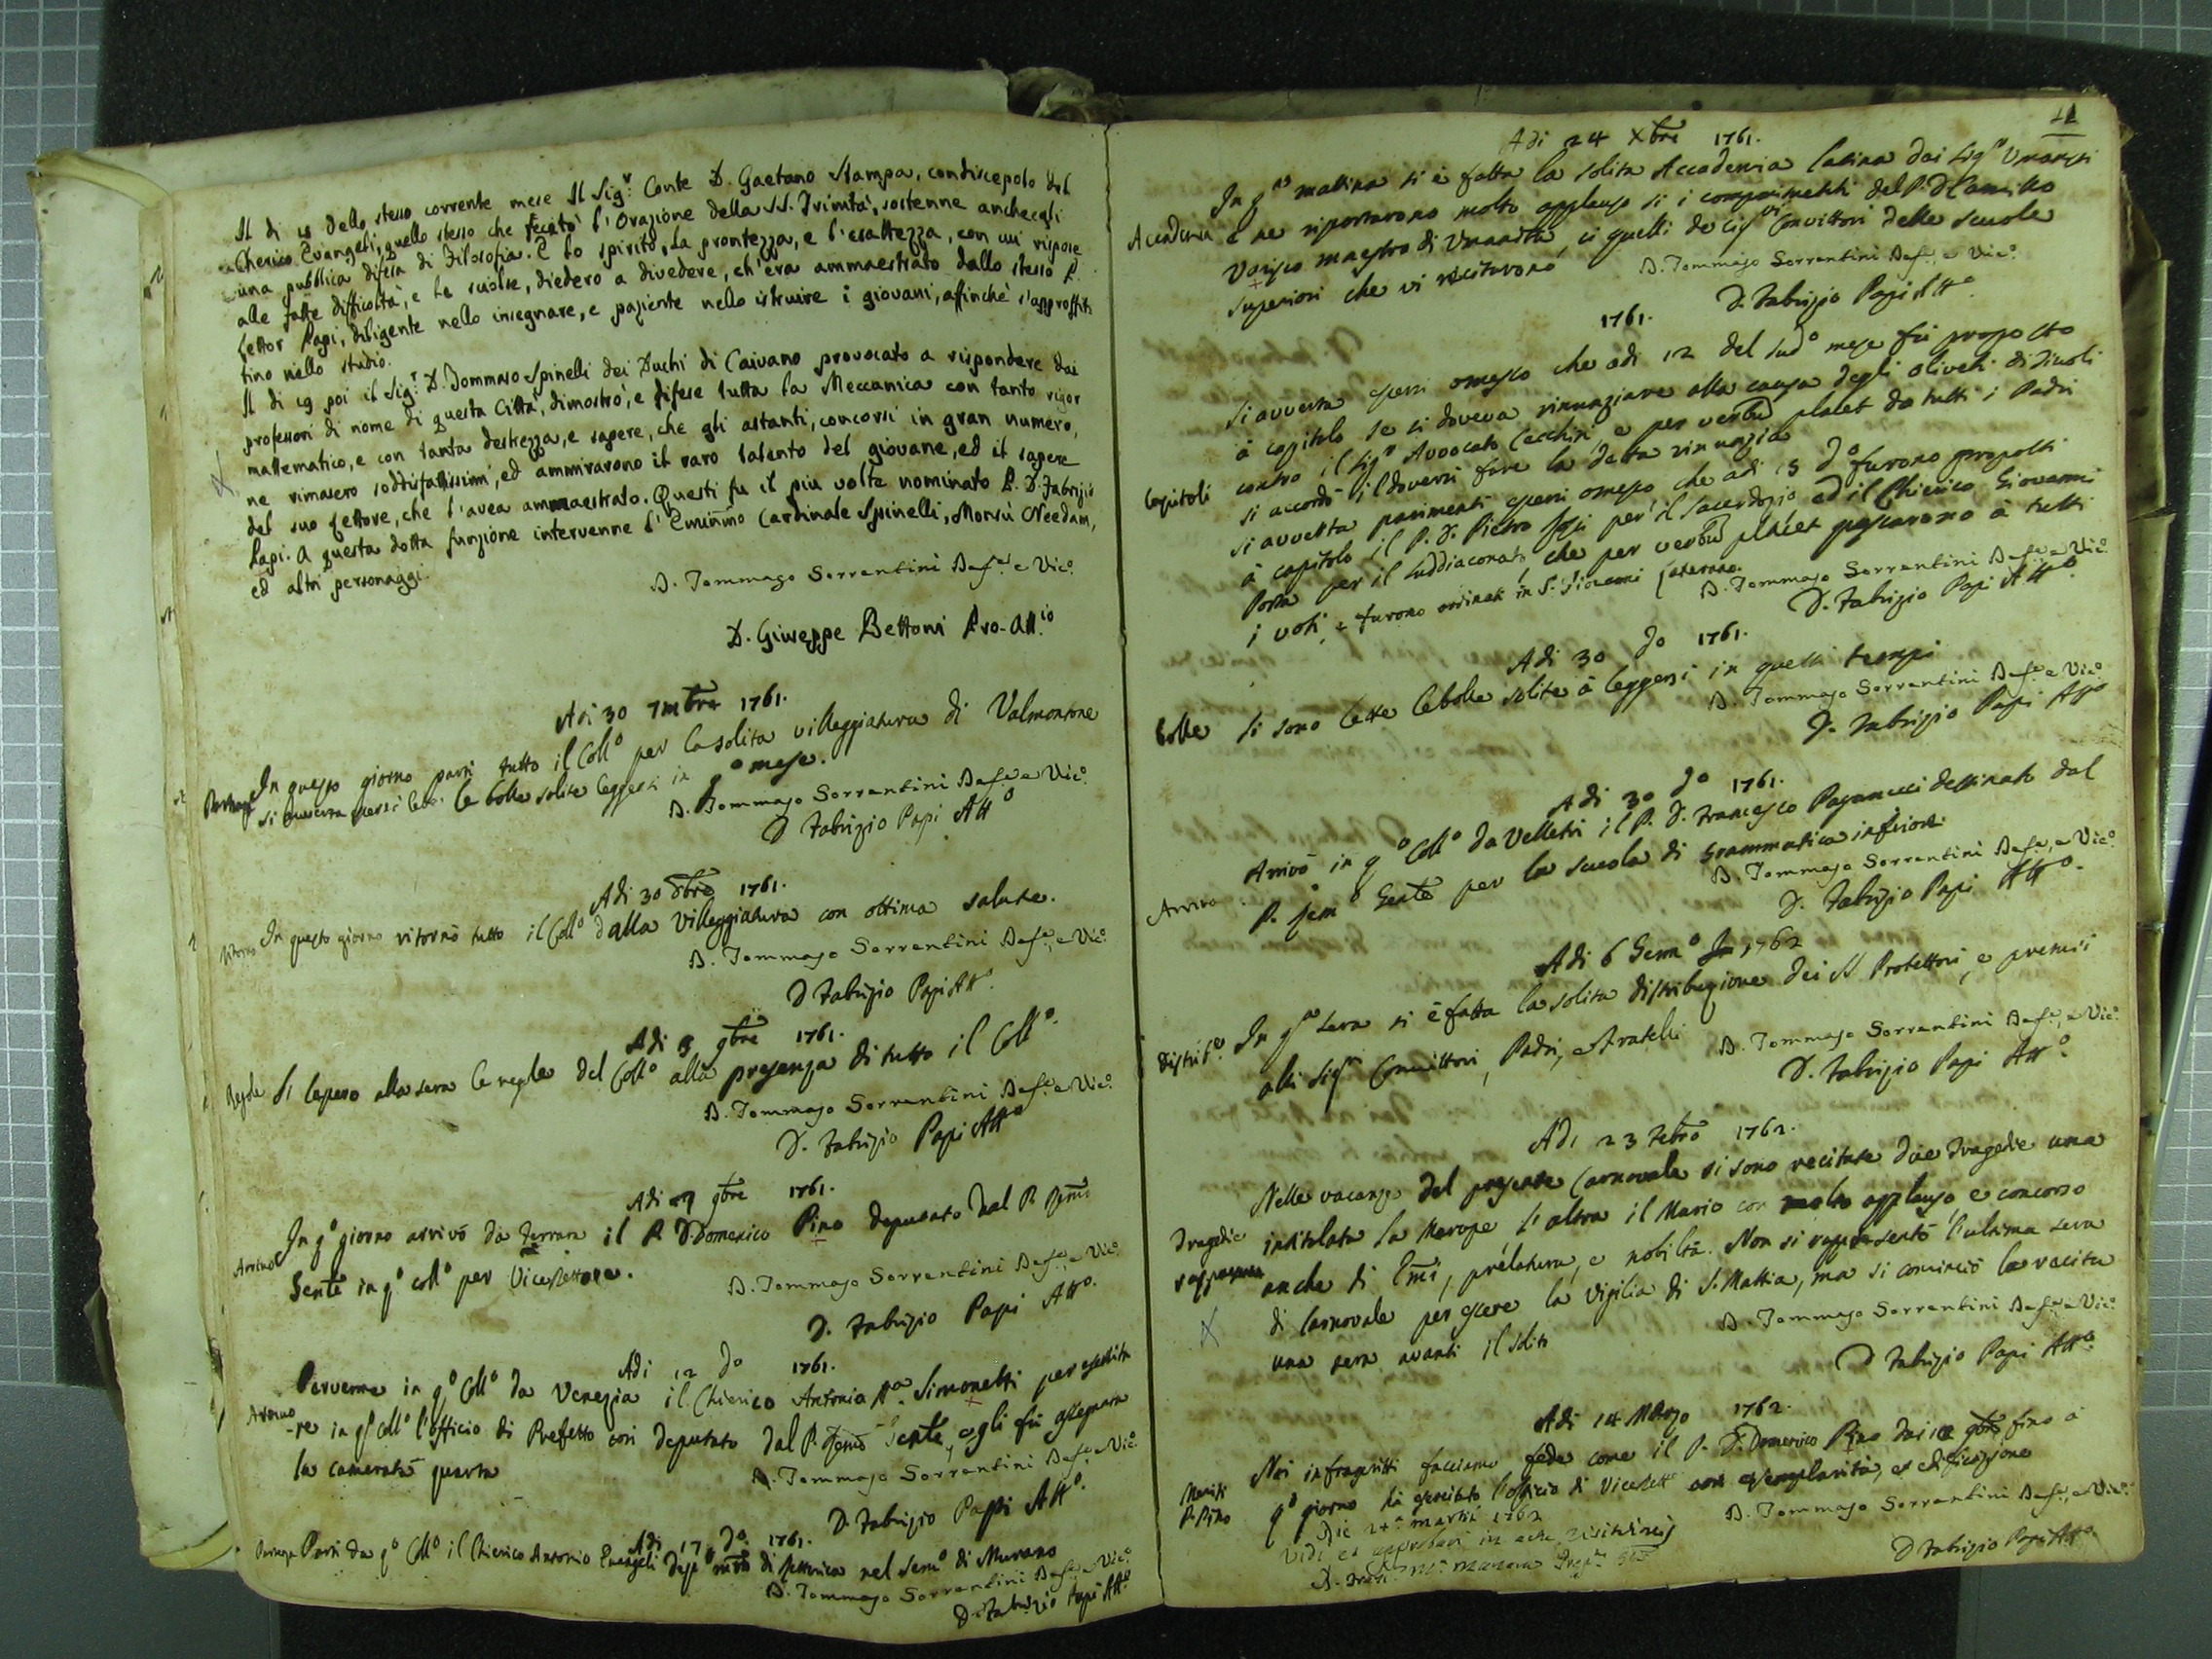 Il di 18 dello stesso corrente mese Il Sig.r Conte D. Gaetano Stampa, condiscepolo del
Cherico Evangeli, quello stesso che recitò l'Orazione della SS. Trinità, sostenne anchegli
una pubblica difesa di Filosofia. E lo spirito, la prontezza, e l'esattezza, con cui rispose
alle fatte difficoltà, e le sciolse, diedero a divedere, ch'era ammaestrato dallo stesso P.
Lettor Papi, diligente nello insegnare, e paziente nello istruire i giovani, affinchè s'approffit-
tino nello studio.
Il di 19 poi il Sig.r D. Tommaso Spinelli dei Duchi di Caivano provocato a rispondere dai
professori di nome di questa Città, dimostrò, e difese tutta la Meccanica con tanto rigor
mattematico, e con tanta destrezza, e sapere, che gli astanti, concorsi in gran numero,
ne rimasero soddisfattissimi, ed ammirarono il raro talento del giovane, ed il sapere
del suo Lettore, che l'avea ammaestrato. Questi fu il più volte nominato P. D. Fabrizio
Papi. A questa dotta funzione intervenne l'Emin̄mo Cardinale Spinelli, Monsù Needam,
ed altri personaggi.
D. Tommaso Sorrentini e Vic.o
D. Giuseppe Bettoni Pro-Att.io
Adi 30 7mbre 1761.
Partenza In questo giorno partì tutto il Coll.o per la solita villeggiatura di Valmontone
si avverta essersi lette le bolle solite leggersi in q.o mese.
D. Tommaso Sorrentini e Vic.o
D Fabrizio Papi Att.o
Adi 30 8bre 1761.
Ritorno In questo giorno ritornò tutto il Coll.o dalla Villeggiatura con ottima salute.
D. Tommaso Sorrentini e Vic.o
D Fabrizio Papi Att.o
Adi 5 9bre 1761.
Regole Si lessero alla sera le regole del Coll.o alla presenza di tutto il Coll.o
D. Tommaso Sorrentini e Vic.o
D. Fabrizio Papi Att.o
Adi 9bre 1761.
Arrivo In q.o giorno arrivò da Ferrara il P. D Domenico Pino deputato dal P.
Gen̄le in q.o coll.o per ViceRettore.
D. Tommaso Sorrentini e Vic.o
D. Fabrizio Papi Att.o
Adi 12 do 1761.
Arrivo Pervenne in q.o Coll.o da Venezia il Chierico Antonio Simonetti per esercita
-re in q.o Coll.o l'officio di Prefetto così deputato dal P. Gen̄le, e gli fù assegnata
la camerata quarta
D. Tommaso Sorrentini e Vic.o
D. Fabrizio Papi Att.o
Adi 17 do 1761.
Partenza Partì da q.o Coll.o il Chierico Antonio Evangeli di Rettorica nel Sem.o di Murano
D. Tommaso Sorrentini e Vic.o
D. Fabrizio Papi Att.o
11
Adi 24 Xbre 1761.
Accademia In q.ta mattina si è fatta la solita Accademia latina dai Sig.ri Umanisti
e ne riportarono molto applauso sì i componimenti del P. D Camillo
Varisco maestro di Umanità, sì quelli de Sig.ri Convittori delle scuole
superiori che vi recitarono
D. Tommaso Sorrentini e Vic.o
D. Fabrizio Papi Att.o
1761.
Si avverta essersi omesso che adi 12 del sud.o mese fù proposto
à capitolo se si doveva rinunziare alla causa degli oliveti di Tivoli
contro il Sig.r Avvocato Cecchini, e per verbū placet da tutti i Padri
Capitoli si accordò il doversi fare la detta rinunzia
Si avverta parimenti essersi omesso che adi 15 do furono proposti
à capitolo il P. D. Pietro per il Sacerdozio ed il Chierico Giovanni
Porta per il suddiaconato, che per verbū placet passarono à tutti
i voti, e furono ordinati in S. Giovanni Laterano.
D. Tommaso Sorrentini e Vic.o
D. Fabrizio Papi Att.o
Adi 30 do 1761.
Bolle Si sono lette le bolle solite à leggersi in questi tempi
D. Tommaso Sorrentini e Vic.o
D. Fabrizio Papi Att.o
Adi 30 do 1761.
Arrivo Arrivò in q.o Coll.o da Velletri il P. D. Francesco Paganucci destinato dal
P. Gen̄le per la scuola di Grammatica inferiore.
D. Tommaso Sorrentini e Vic.o
D. Fabrizio Papi Att.o
Adi 6 Genn.o 1762
Distrib.e In q.ta sera si è fatta la solita distribuzione dei SS Protettori, e premii
alli Sig.ri Convittori, Padri, e Fratelli
D. Tommaso Sorrentini e Vic.o
D. Fabrizio Papi Att.o
Adi 23 Febro 1762.
Nelle vacanze del presente Carnovale si sono recitate due Tragedie una
Tragedie intitolata la Merope, l'altra il Mario con molto applauso, e concorso
anche di Em̄i, prelatura, e nobiltà. Non si rappresentò l'ultima sera
di Carnovale per essere la Vigilia di S. Mattia, ma si cominciò la recita
una sera avanti il solito
D. Tommaso Sorrentini e Vic.o
D Fabrizio Papi Att.o
Adi 14 Marzo 1762.
Meriti Noi infrascritti facciamo fede come il P. D. Domenico Pino dai 9bre fino à
P. Pino q.o giorno hà esercitato l'officio di ViceRett.e con esemplarità, ed edificazione
D. Tommaso Sorrentini e Vic.o
Die martii 1762
Vidi et approbavi in actu visitationis
D Fabrizio Papi Att.o